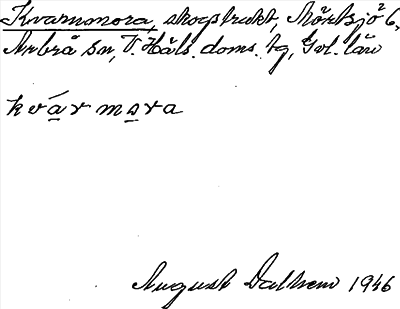 Kvarnmora, skogstrakt, Mörtsjö 2 6,
Arbrå sn, V. Häls. doms. tg, Gvl. län
kvármora
August Dalhem 1946